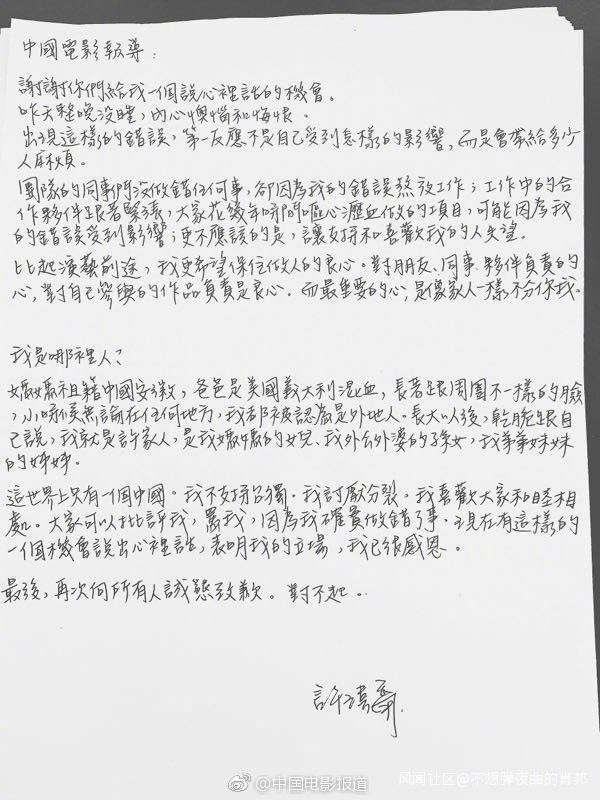 中國電影報導：
謝謝你們給我一個說心裡話的機會。
昨天整晚沒睡，內心懊惱和悔恨。
出現這樣的錯誤，第一反應不是自己受到怎樣的影響，而是會帶給多少
人麻煩。
團隊的同事們沒做錯任何事，卻因為我的錯誤熬夜工作；工作中的合
作夥伴跟著緊張，大家花幾年時間嘔心瀝血做的項目，可能因為我
的錯誤受到影響；更不應該的是，讓支持和喜歡我的人失望。
比起演藝前途，我更希望保住做人的良心。對朋友、同事、夥伴負責的
心，對自己參與的作品負責是良心。而最重要的心，是像家人一樣不分你我。
我是哪裡人？
媽媽祖籍中國安徽，爸爸是美國義大利混血，長著跟周圍不一樣的臉
，小時候無論在任何地方，我都被認為是外地人。長大以後，乾脆跟自
己說，我就是許家人，是我媽媽的女兒、我外公外婆的孫女，我弟弟妹妹
的姊姊。
這世界上只有一個中國。我不支持台獨。我討厭分裂。我喜歡大家和睦相
處。大家可以批評我，罵我，因為我確實做錯了事。現在有這樣的
一個機會說出心裡話，表明我的立場，我已很感恩。
最後，再次向所有人誠懇致歉。對不起。
許瑋甯
@中国电影报道
风闻社区@不想弹夜曲的肖邦